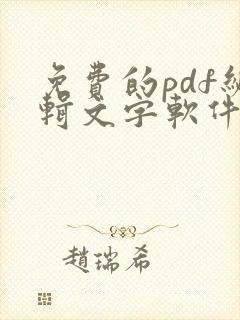 免費的pdf編
輯文字軟件
趙瑞希